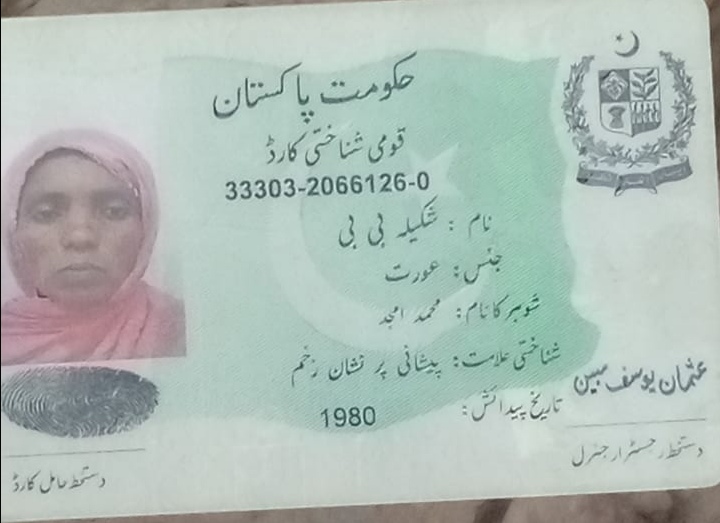 حکومت پاکستان
قومی شناختی کارڈ
33303-2066126-0
نام : شکیلہ بی بی
جنس: عورت
شوہر کا نام: محمد امجد
شناختی علامت: پیشانی پر نشان زخم
تاریخ پیدائش: 1980
عثمان یوسف مبین
دستخط رجسٹرار جنرل
دستخط حامل کارڈ